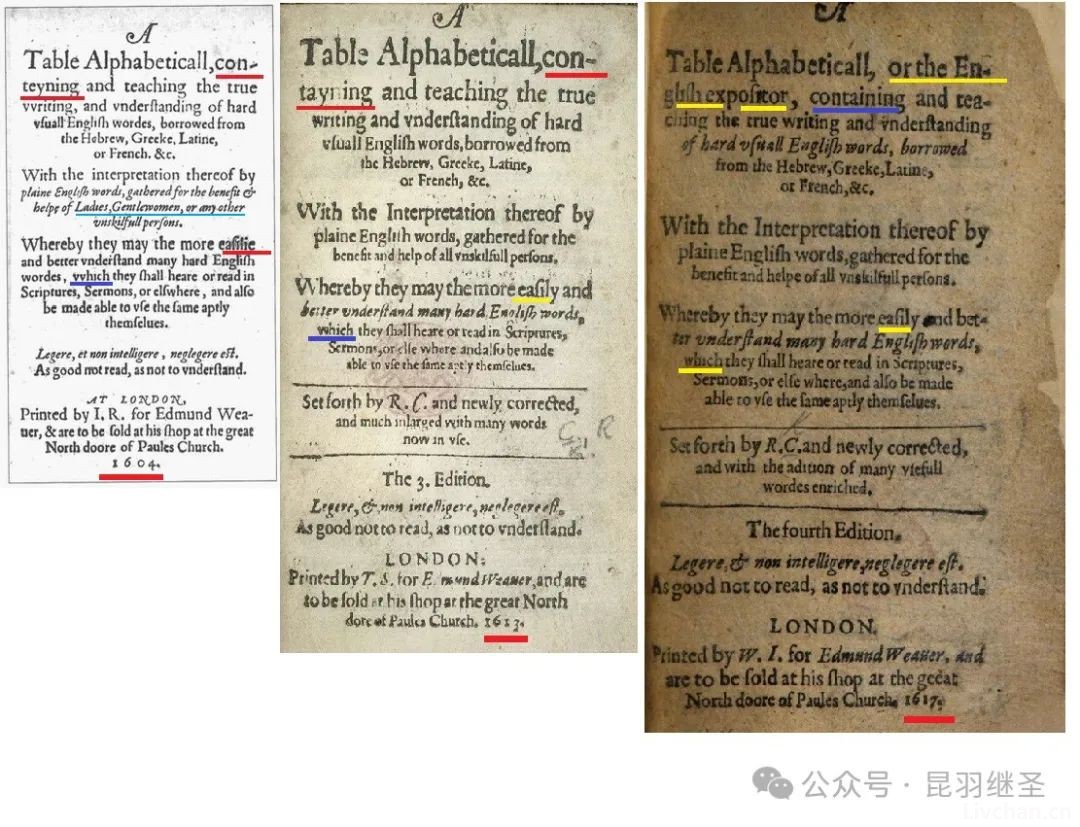 A
Table Alphabeticall, con-
teyning and teaching the true
writing, and vnderſtanding of hard
vſuall Engliſh wordes, borrowed from
the Hebrew, Greeke, Latine,
or French. &c.
With the interpretation thereof by
plaine Engliſh words, gathered for the benefit &
helpe of Ladies, Gentlewomen, or any other
vnskilfull perſons.
Whereby they may the more eaſilie
and better vnderſtand many hard Engliſh
wordes, vvhich they ſhall heare or read in
Scriptures, Sermons, or elſwhere, and alſo
be made able to vſe the ſame aptly
themſelues.
Legere, et non intelligere, neglegere eſt.
As good not read, as not to vnderſtand.
AT LONDON,
Printed by I. R. for Edmund Wea-
uer, & are to be ſold at his ſhop at the great
North doore of Paules Church.
1604.
A
Table Alphabeticall, con-
tayning and teaching the true
writing and vnderſtanding of hard
vſuall Engliſh words, borrowed from
the Hebrew, Greeke, Latine,
or French, &c.
With the Interpretation thereof by
plaine Engliſh words, gathered for the
benefit and help of all vnskilfull perſons.
Whereby they may the more eaſily and
better vnderſtand many hard Engliſh words,
which they ſhall heare or read in Scriptures,
Sermons, or elſe where and alſo be made
able to vſe the ſame aptly themſelues.
Set forth by R. C. and newly corrected,
and much inlarged with many words
now in vſe.
The 3. Edition.
Legere, & non intelligere, neglegere eſt.
As good not to read, as not to vnderſtand.
LONDON:
Printed by T. S. for Edmund Weauer, and are
to be ſold at his ſhop at the great North
dore of Paules Church. 1613.
A
Table Alphabeticall, or the En-
gliſh expoſitor, containing and tea-
ching the true writing and vnderſtanding
of hard vſuall Engliſh words, borrowed
from the Hebrew, Greeke, Latine,
or French, &c.
With the Interpretation thereof by
plaine Engliſh words, gathered for the
benefit and helpe of all vnskilfull perſons.
Whereby they may the more eaſily and bet-
ter vnderſtand many hard Engliſh words,
which they ſhall heare or read in Scriptures,
Sermons, or elſe where, and alſo be made
able to vſe the ſame aptly themſelues.
Set forth by R. C. and newly corrected,
and with the adition of many vſefull
wordes enriched.
The fourth Edition.
Legere, & non intelligere, neglegere eſt.
As good not to read, as not to vnderſtand.
LONDON.
Printed by W. I. for Edmund Weauer, and
are to be ſold at his ſhop at the great
North doore of Paules Church. 1617.
公众号·昆羽继圣
Livchan.cn